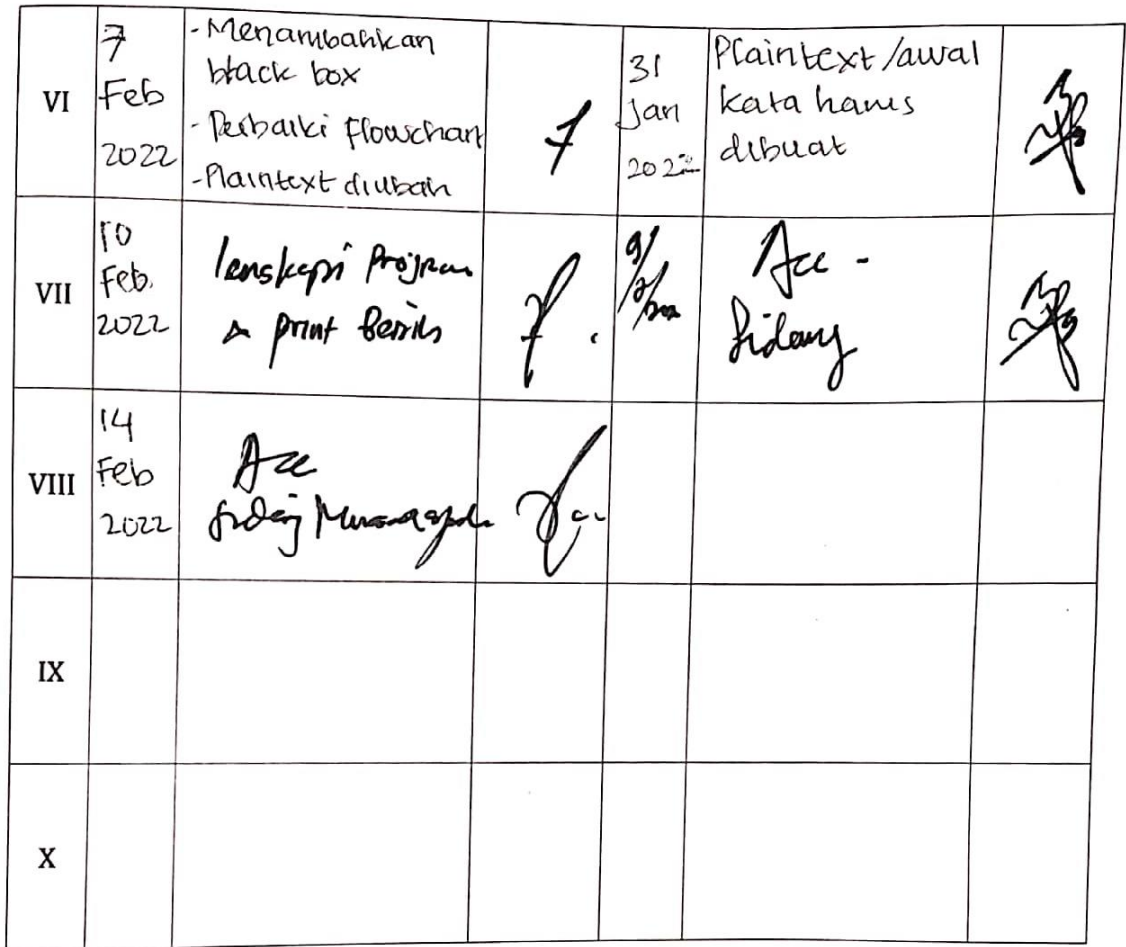 VI
7
Feb
2022
-Menambahkan
black box
-Perbaiki flowchart
-Plaintext diubah
31
Jan
2022
Plaintext/awal
kata harus
dibuat
VII
10
Feb.
2022
print
9/2/2022
Acc -
Sidang
VIII
14
Feb
2022
Acc
Sidang
IX
X